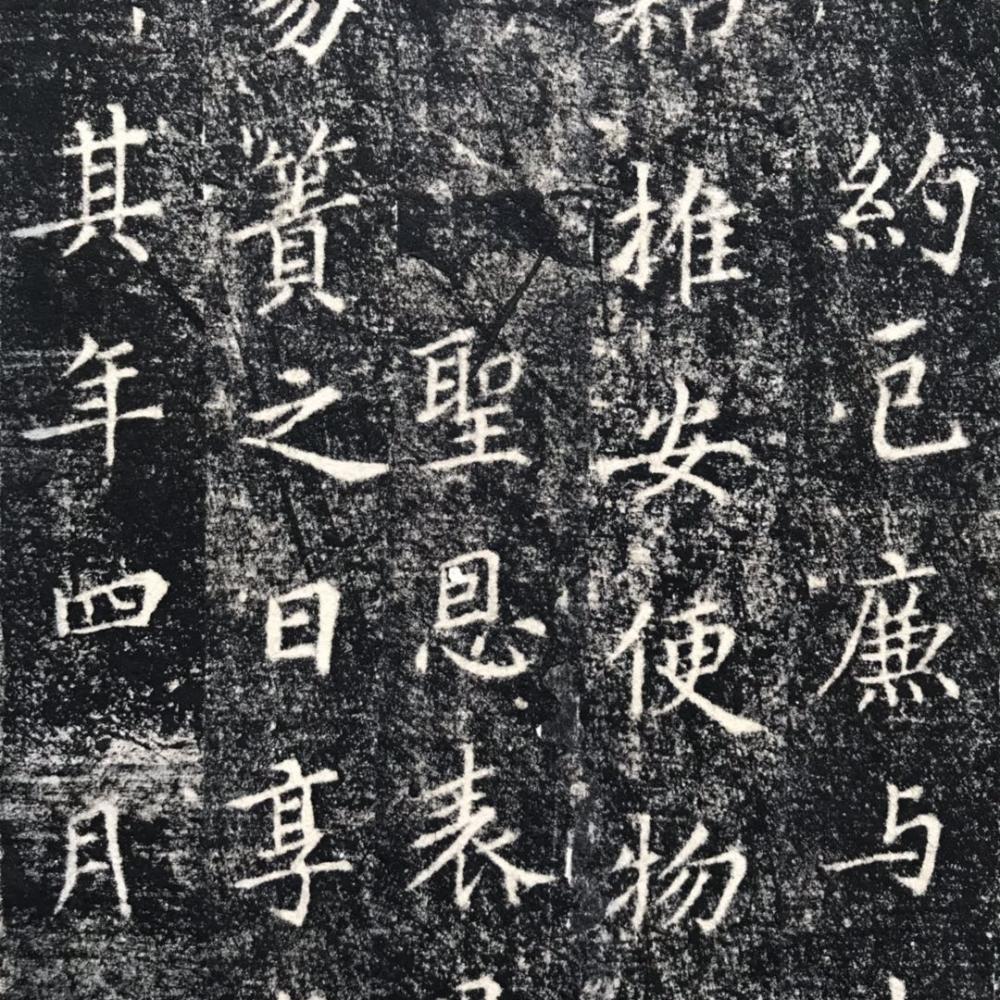 約己廉与
推安便物
聖恩表
簀之日享
其年四月